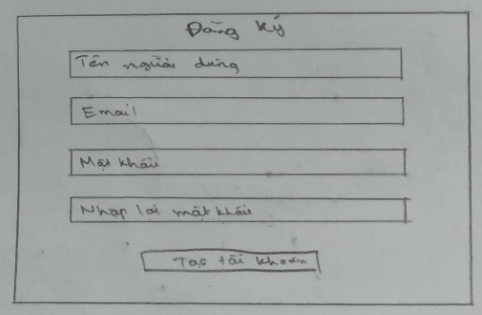 Đăng ký
Tên người dùng
Email
Mật khẩu
Nhập lại mật khẩu
Tạo tài khoản